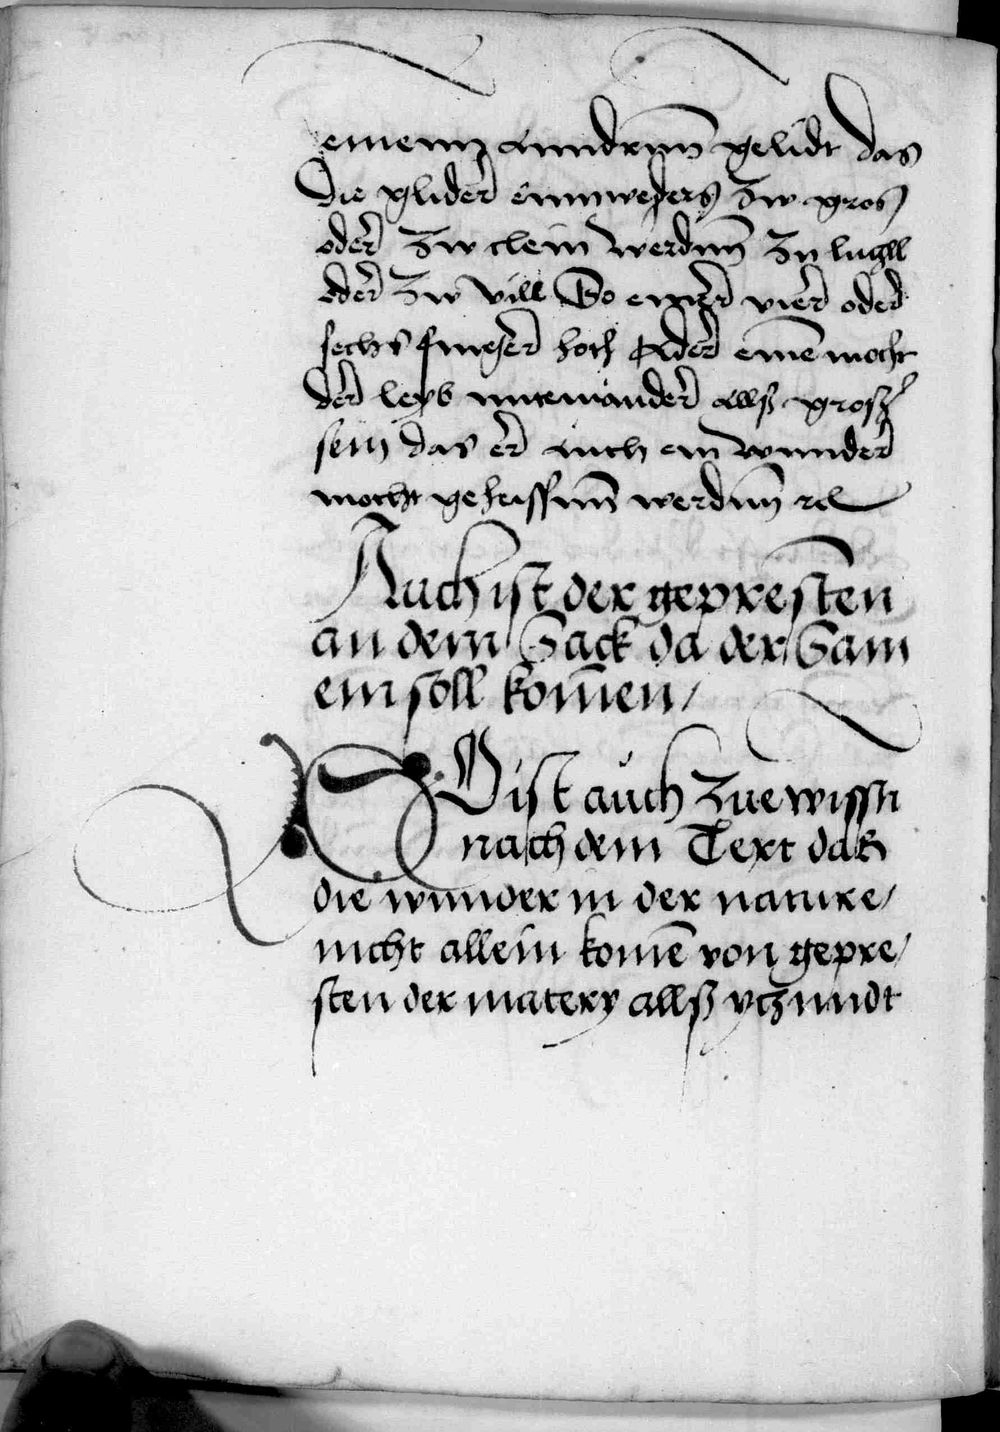 einem anndrnn̄ gelidt das
Die glider einnweders zw gros
oder zw clein werdnn̄ zu lutzll
oder zw vill So einer vier oder
sechs finger hoch Oder eine mocht
der leyb miteinander allß grosz
sein das er auch ein wunder
mocht geheissnn̄ werdnn̄ rc
Auch ist der gepresten
an dem Sack da der Sam
ein soll komen /
DO ist auch zue wissn
nach dem Text daß
die wunder in der nature /
nicht allein komē von gepre /
sten der matery allß ytzundt